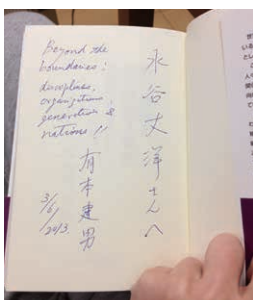 Beyond the
boundaries:
disciplines,
organizations,
generations &
nations !!
水谷丈洋さんへ
有本建男
3/6/
2013.